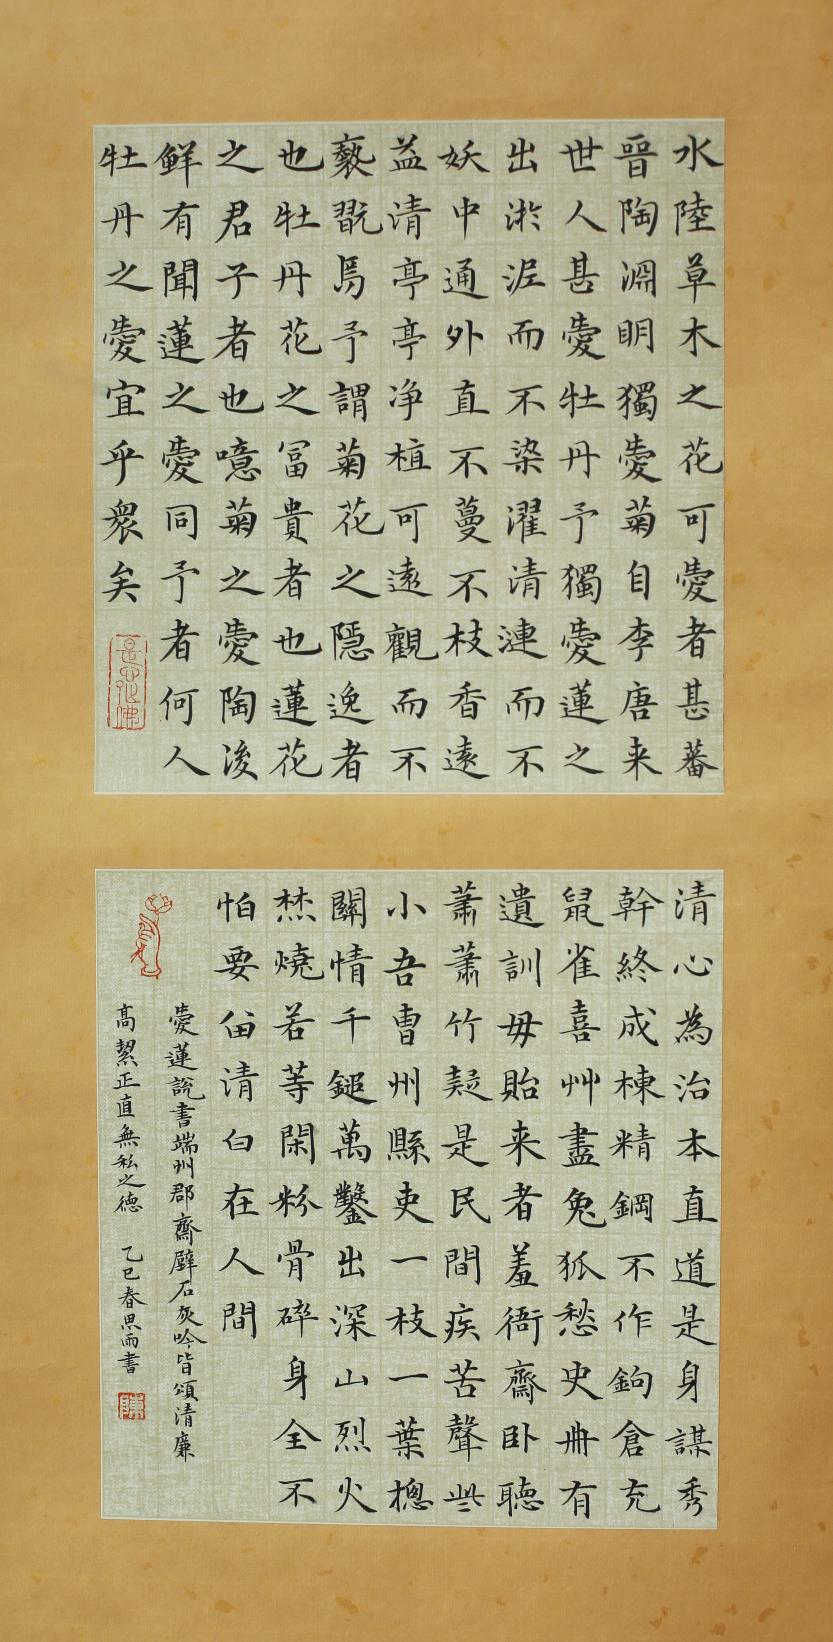 水陸草木之花可愛者甚蕃
晉陶淵明獨愛菊自李唐来
世人甚愛牡丹予獨愛蓮之
出淤泥而不染濯清漣而不
妖中通外直不蔓不枝香遠
益清亭亭净植可遠觀而不
褻翫焉予謂菊花之隱逸者
也牡丹花之冨貴者也蓮花
之君子者也噫菊之愛陶後
鮮有聞蓮之愛同予者何人
牡丹之愛宜乎衆矣
清心為治本直道是身謀秀
幹終成棟精鋼不作鉤倉充
鼠雀喜艸盡兔狐愁史冊有
遺訓毋貽来者羞衙齋卧聴
蕭蕭竹疑是民間疾苦聲些
小吾曹州縣吏一枝一葉摠
關情千鎚萬鑿出深山烈火
焚燒若等閑粉骨碎身全不
怕要留清白在人間
愛蓮說書端州郡齋壁石灰吟皆頌清廉
高絜正直無私之德 乙巳春思雨書